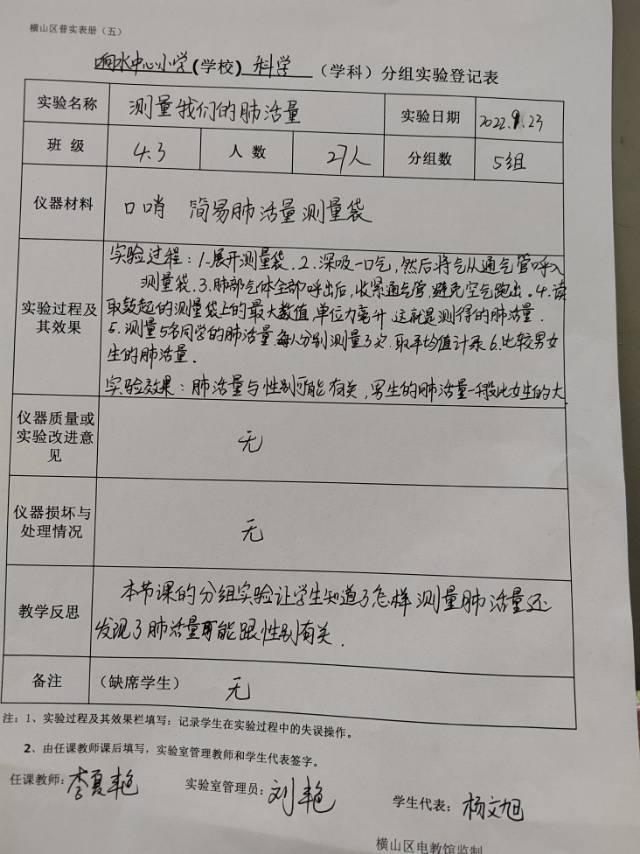 横山区普实表册（五）
响水中心小学(学校) 科学 （学科）分组实验登记表
实验名称 测量我们的肺活量 实验日期 2022.9.23
班 级 4.3 人 数 27人 分组数 5组
仪器材料 口哨 简易肺活量测量袋
实验过程：1.展开测量袋.2.深吸一口气,然后将气从通气管呼入
测量袋.3.肺部气体全部呼出后,收紧通气管,避免空气跑出.4.读
实验过程及其效果 取鼓起的测量袋上的最大数值,单位为毫升,这就是测得的肺活量.
5.测量5名同学的肺活量,每人分别测量3次.取平均值计录6.比较男女
生的肺活量.
实验效果：肺活量与性别可能有关,男生的肺活量一般比女生的大
仪器质量或实验改进意见 无
仪器损坏与处理情况 无
教学反思 本节课的分组实验让学生知道了怎样测量肺活量还
发现了肺活量可能跟性别有关.
备注 （缺席学生） 无
注：1、实验过程及其效果栏填写：记录学生在实验过程中的失误操作。
2、由任课教师课后填写，实验室管理教师和学生代表签字。
任课教师: 李夏艳 实验室管理员: 刘艳 学生代表: 杨文旭
横山区电教馆监制